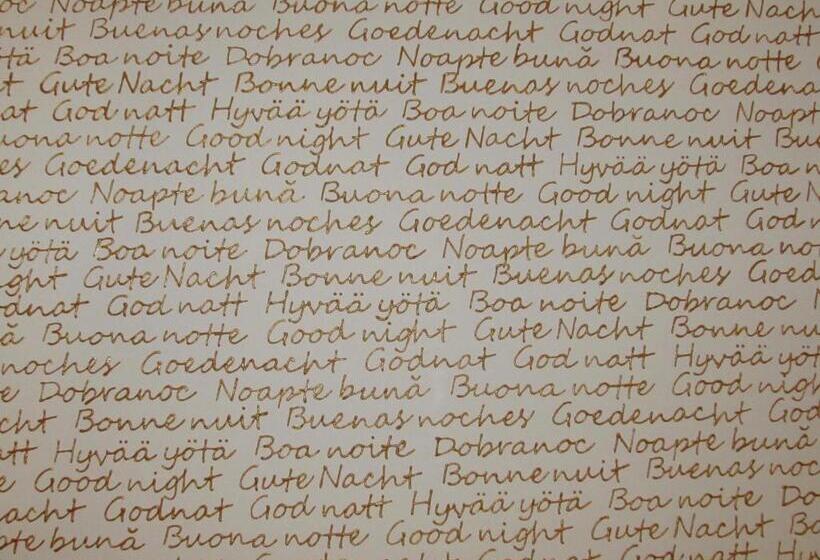 oc Noapte bună Buona notte Good night Gute Nach
nuit Buenas noches Goedenacht Godnat God natt
tä Boa noite Dobranoc Noapte bună Buona notte
t Gute Nacht Bonne nuit Buenas noches Goedena
at God natt Hyvää yötä Boa noite Dobranoc Noapt
uona notte Good night Gute Nacht Bonne nuit Bue
es Goedenacht Godnat God natt Hyvää yötä Boa n
anoc Noapte bună Buona notte Good night Gute N
ne nuit Buenas noches Goedenacht Godnat God n
yötä Boa noite Dobranoc Noapte bună Buona no
ght Gute Nacht Bonne nuit Buenas noches Goed
dnat God natt Hyvää yötä Boa noite Dobranoc N
ă Buona notte Good night Gute Nacht Bonne nu
noches Goedenacht Godnat God natt Hyvää yöt
e Dobranoc Noapte bună Buona notte Good nigh
cht Bonne nuit Buenas noches Goedenacht God
att Hyvää yötä Boa noite Dobranoc Noapte bună
e Good night Gute Nacht Bonne nuit Buenas noc
acht Godnat God natt Hyvää yötä Boa noite Do
pte bună Buona notte Good night Gute Nacht Bo